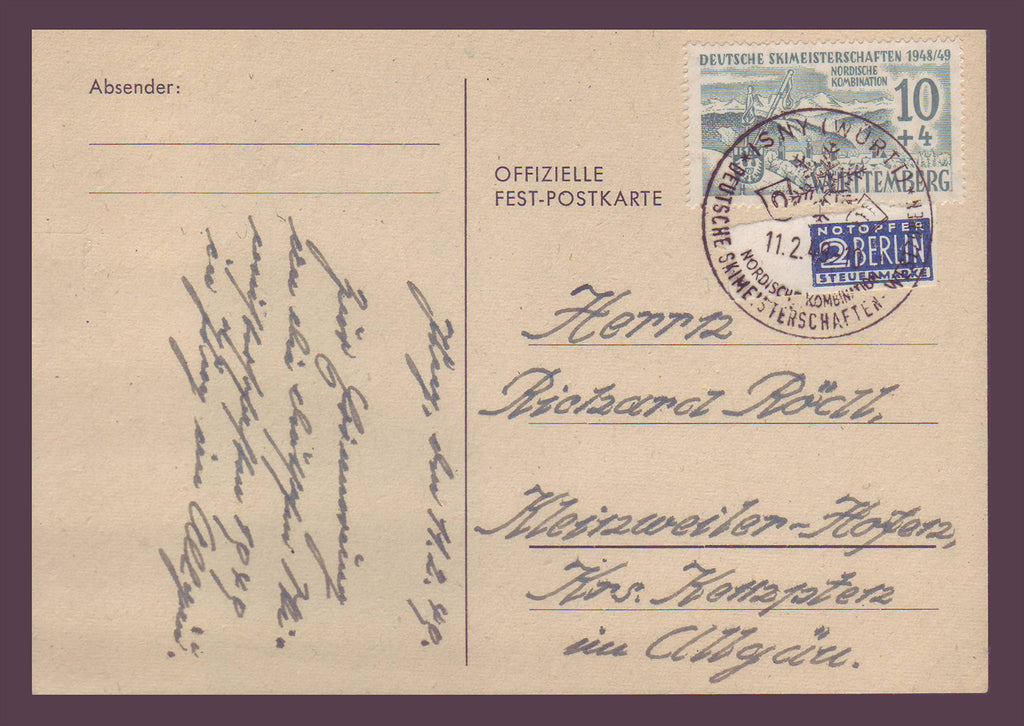 Absender:
OFFIZIELLE
FEST-POSTKARTE
DEUTSCHE SKIMEISTERSCHAFTEN 1948/49
NORDISCHE
KOMBINATION
10
+4
WÜRTTEMBERG
ISNY (WÜRTT)
DEUTSCHE SKIMEISTERSCHAFTEN
11.2.49
NORDISCHE KOMBINATION
NOTOPFER
2 BERLIN
STEUERMARKE
Herrn
Richard Rödl,
Kleinweiler-Hofen,
Krs. Kempten
im Allgäu.
Isny, den 11.2.49.
Zur Erinnerung
an die deutschen Ski-
meisterschaften 1949
in Isny im Allgäu.